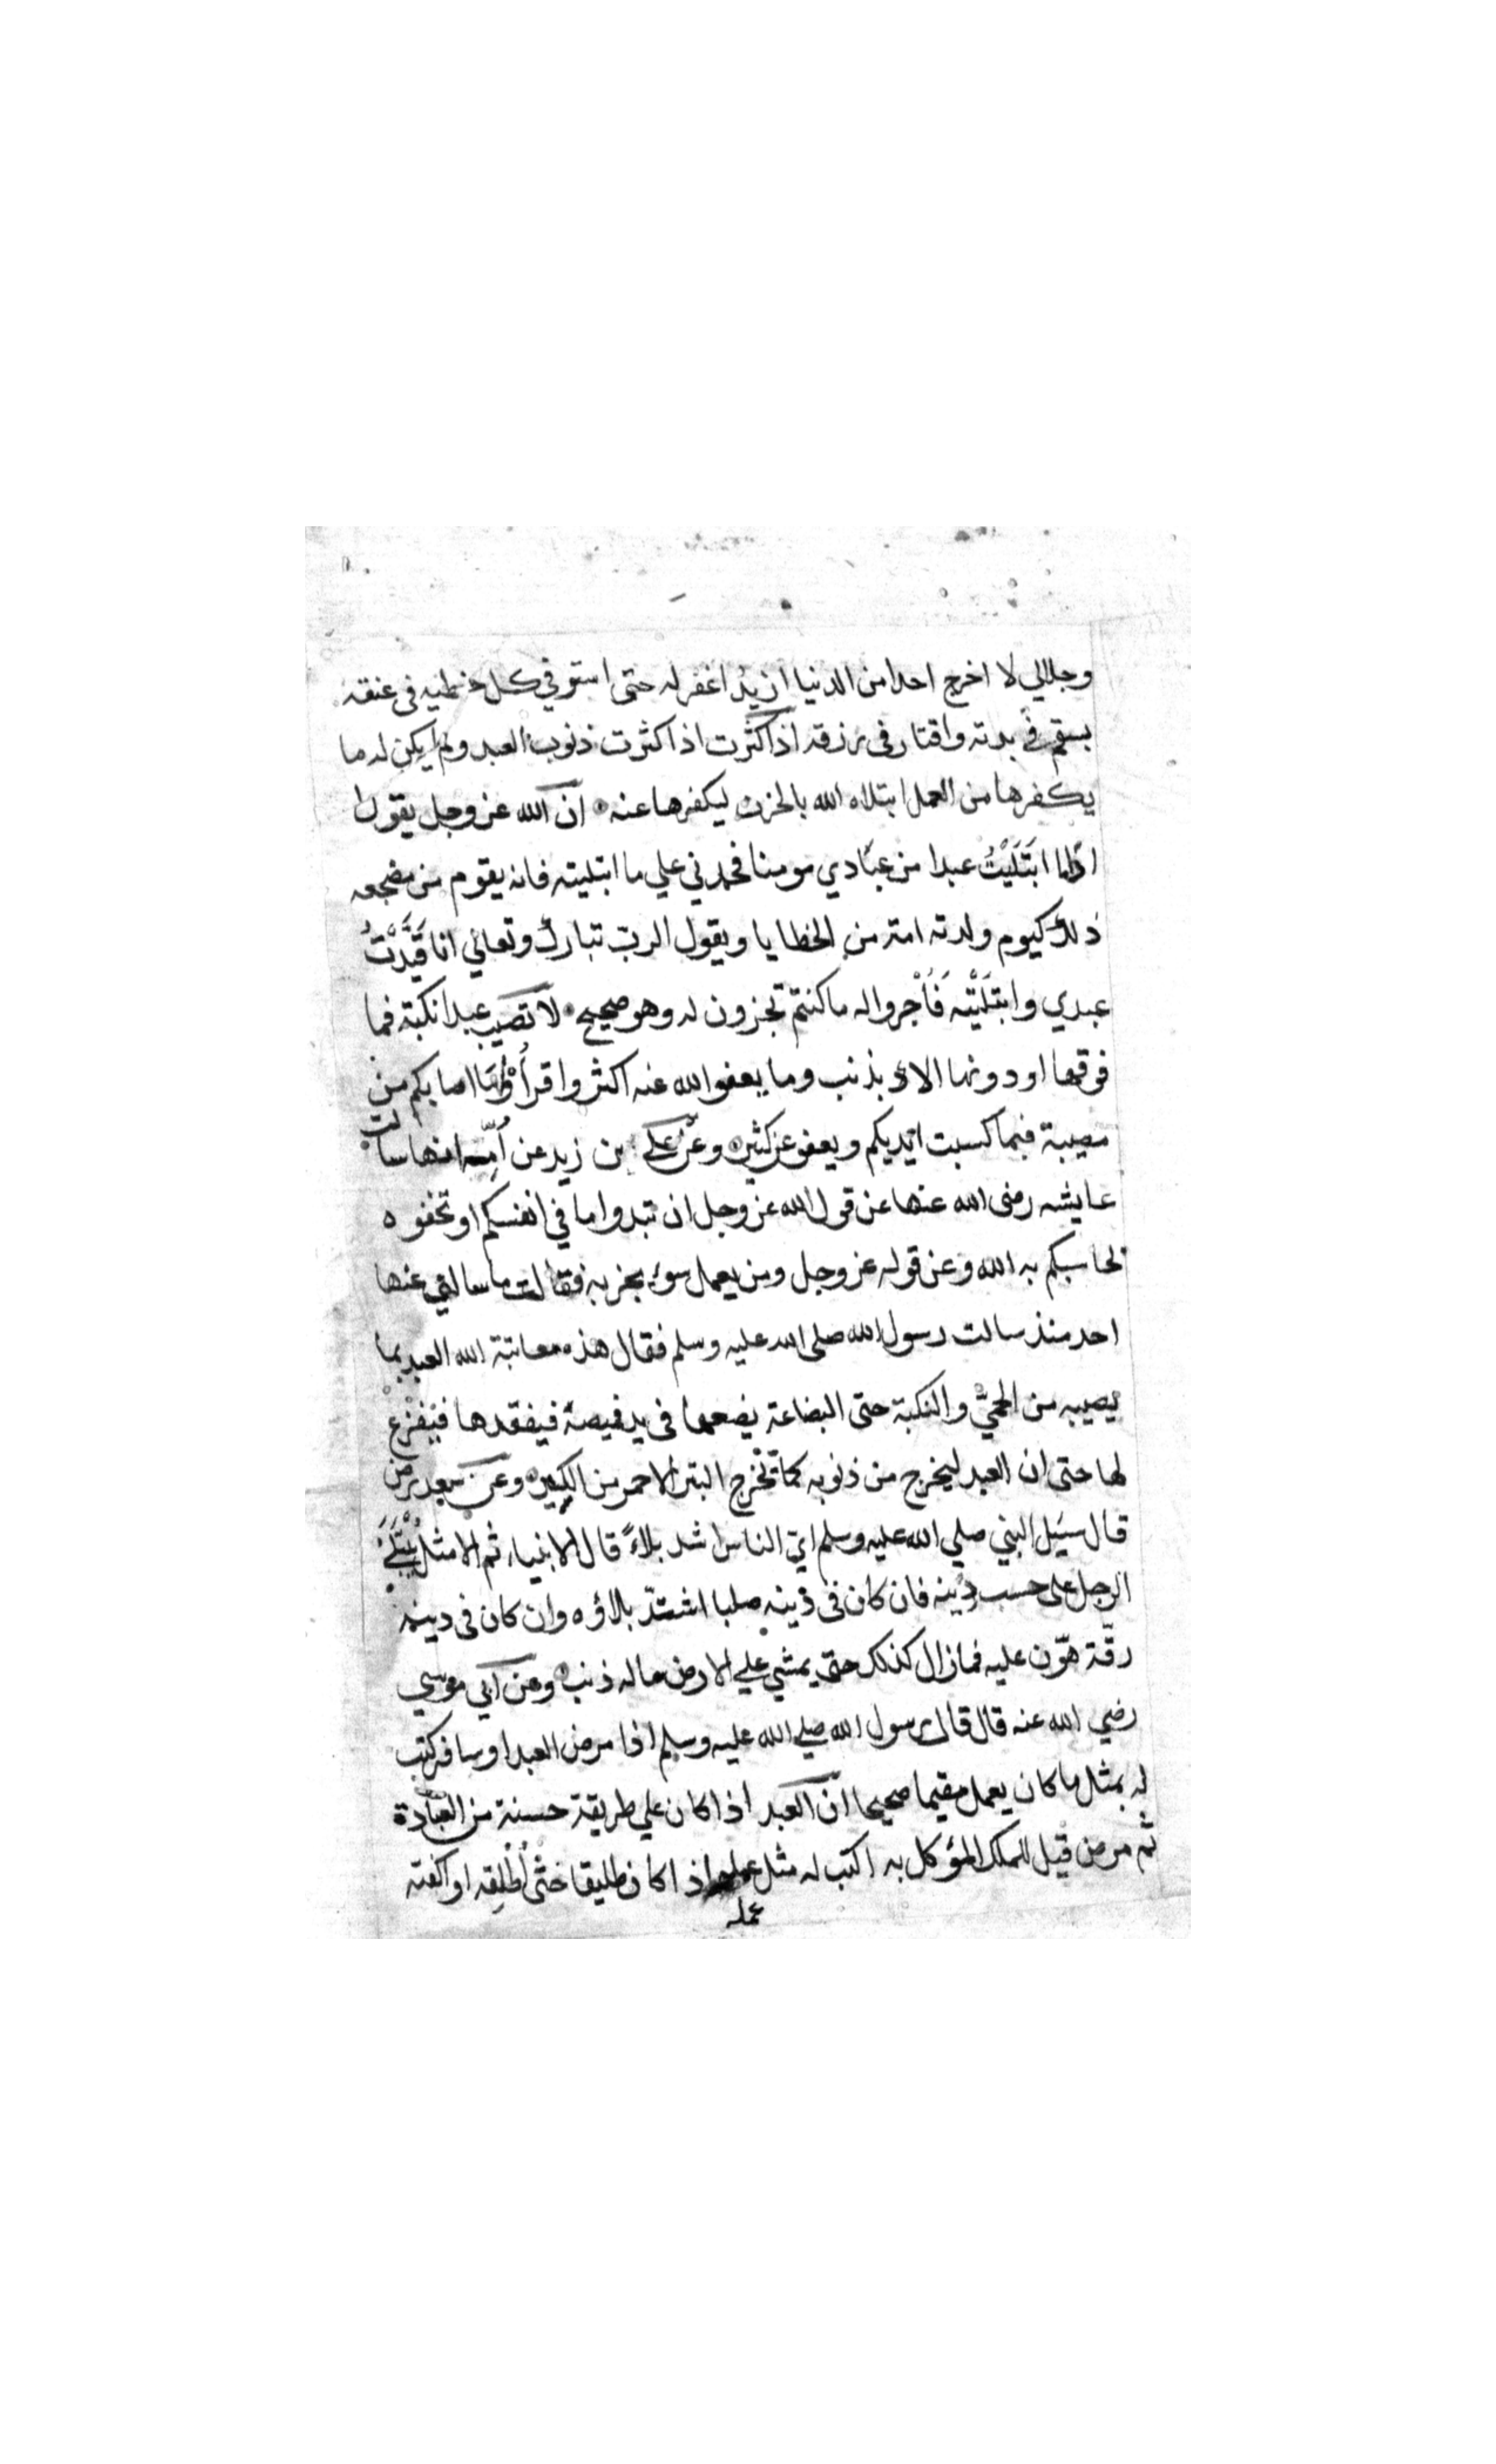 وجلالي لا اخرج احدا من الدنيا اريد اغفر له حتى استوفي كل خطيه في عنقه
بسقم في بدنه واقتار في رزقه اذا كثرت اذا كثرت ذنوب العبد ولم يكن له ما
يكفرها من العمل ابتلاه الله بالحزن ليكفرها عنه ان الله عز وجل يقول
اذا انا ابتَلَيْتُ عبدا من عبادي مومنا فحمدني علي ما ابتليته فانه يقوم من مضجعه
ذلك كيوم ولدته امه من الخطايا ويقول الرب تبارك وتعالي انا قَيَّدْتُ
عبدي وابتَلَيْته فَأَجْروا له ما كنتم تجزون له وهو صحيح لا تصيب عبدا نكبة فما
فوقها او دونها الا بذنب وما يعفوا الله عنه اكثر واقرأ وما اصابكم من
مصيبة فبما كسبت ايديكم ويعفو عن كثير وعن علي بن زيد عن اُمَيّه انها سالت
عايشه رضي الله عنها عن قول الله عز وجل ان تبدوا ما في انفسكم او تخفوه
يحاسبكم به الله وعن قوله عز وجل ومن يعمل سوء يجز به فقالت ما سالني عنها
احد منذ سالت رسول الله صلى الله عليه وسلم فقال هذه معاتبة الله العبد بما
يصيبه من الحميّ والنكبة حتى البضاعة يضعها في يد قميصه فيفقدها فيفزع
لها حتى ان العبد ليخرج من ذنوبه كما يخرج التبر الاحمر من الكير وعن سعد رض
قال سيل النبي صلي الله عليه وسلم اي الناس اشد بلاءً قال الانبياء ثم الامثل يُبْتَلَيَ
الرجل على حسب دينه فان كان في دينه صلبا اشتدّ بلاؤه وان كان في دينه
رقّة هوّن عليه فما زال كذلك حتى يمشي علي الارض ما له ذنب وعن ابي موسي
رضي الله عنه قال قال رسول الله صلي الله عليه وسلم اذا مرض العبد او سافر كتب
له بمثل ما كان يعمل مقيما صحيحا ان العبد اذا كان علي طريقة حسنة من العبادة
ثم مرض قيل للملك المؤكل به اكتب له مثل عمله اذا كان طليقا حتى اُطْلِقه او اكفته
عمله